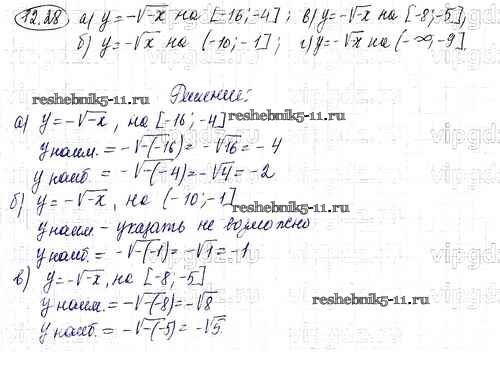 12.28 а) y=-√-x на [-16;-4]; в) y=-√-x на [-8;-5],
б) y=-√x на (-10;-1]; г) y=-√x на (-∞;-9].
Решение:
reshebnik5-11.ru
а) y=-√-x, на [-16;-4]
reshebnik5-11.ru
y наим.=-√-(-16)=-√16=-4
y наиб.=-√-(-4)=-√4=-2
б) y=-√-x, на (-10;-1]
reshebnik5-11.ru
y наим.-указать не возможно
y наиб.=-√-(-1)=-√1=-1
в) y=-√-x, на [-8,-5]
y наим.=-√-(-8)=-√8
reshebnik5-11.ru
y наиб.=-√-(-5)=-√5